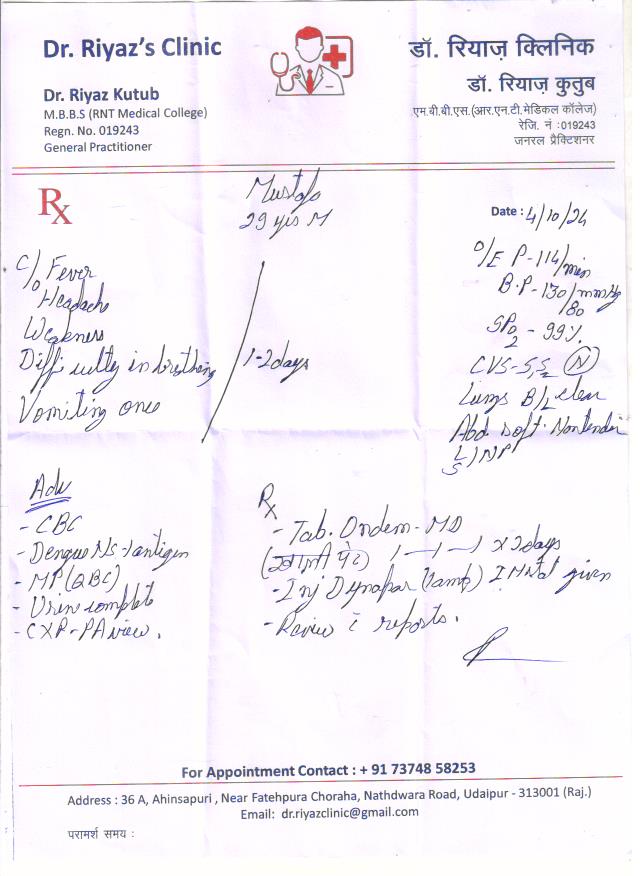 Dr. Riyaz's Clinic
Dr. Riyaz Kutub
M.B.B.S (RNT Medical College)
Regn. No. 019243
General Practitioner
डॉ. रियाज़ क्लिनिक
डॉ. रियाज़ कुतुब
एम.बी.बी.एस.(आर.एन.टी.मेडिकल कॉलेज)
रेजि. नं :019243
जनरल प्रैक्टिशनर
Rx
Mustafa
29 yrs M
Date : 4/10/24
C/o Fever
Headache
Weakness
Difficulty in breathing
Vomiting once
1-2days
O/E P-114/min
B.P-130/80 mmHg
SPO2 - 99%
CVS-S1S2 (N)
Lungs B/L clear
Abd soft. Nontender
L/S) NP
Adv
- CBC
- Dengue Ns-1antigen
- MP (QBC)
- Urine complete
- CXR-PA view.
Rx
- Tab. Ondem-MD
(खाली पेट) 1—1—1 x 2days
- Inj Dynapar (1amp) IM stat given
- Review c̄ reports.
For Appointment Contact : + 91 73748 58253
Address : 36 A, Ahinsapuri , Near Fatehpura Choraha, Nathdwara Road, Udaipur - 313001 (Raj.)
Email: dr.riyazclinic@gmail.com
परामर्श समय :